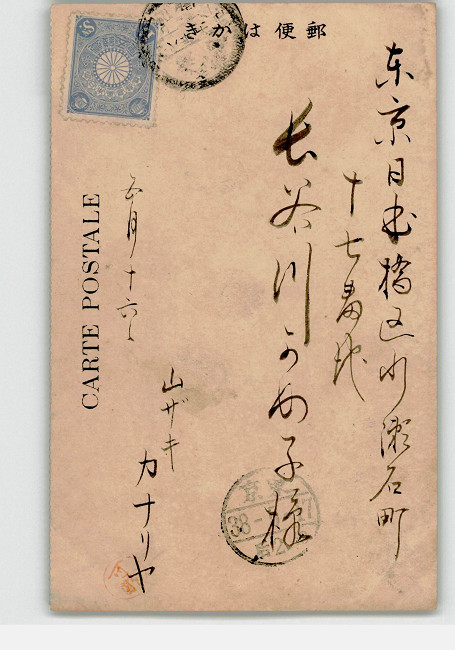 きかは便郵
東京日本橋区小瀬石町
十七番地
長谷川かめ子様
五月十六日
山ザキ
カナリヤ
CARTE POSTALE
東京
38